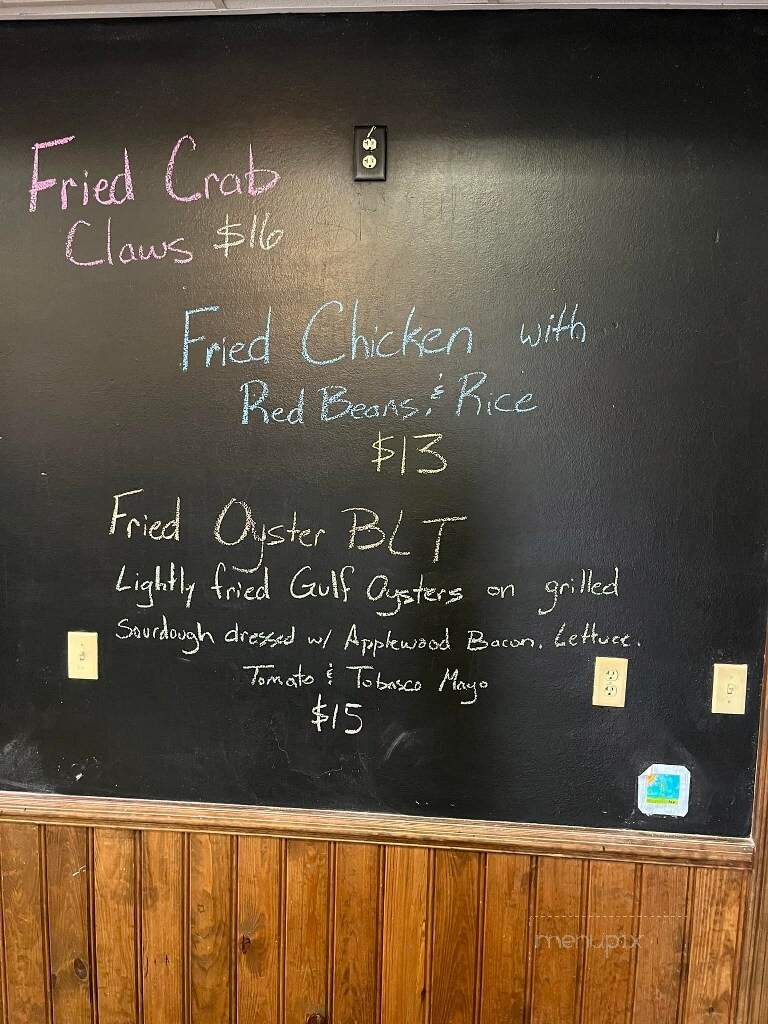 Fried Crab
Claws $16
Fried Chicken with
Red Beans & Rice
$13
Fried Oyster BLT
Lightly fried Gulf Oysters on grilled
Sourdough dressed w/ Applewood Bacon, Lettuce,
Tomato & Tobasco Mayo
$15
menupix